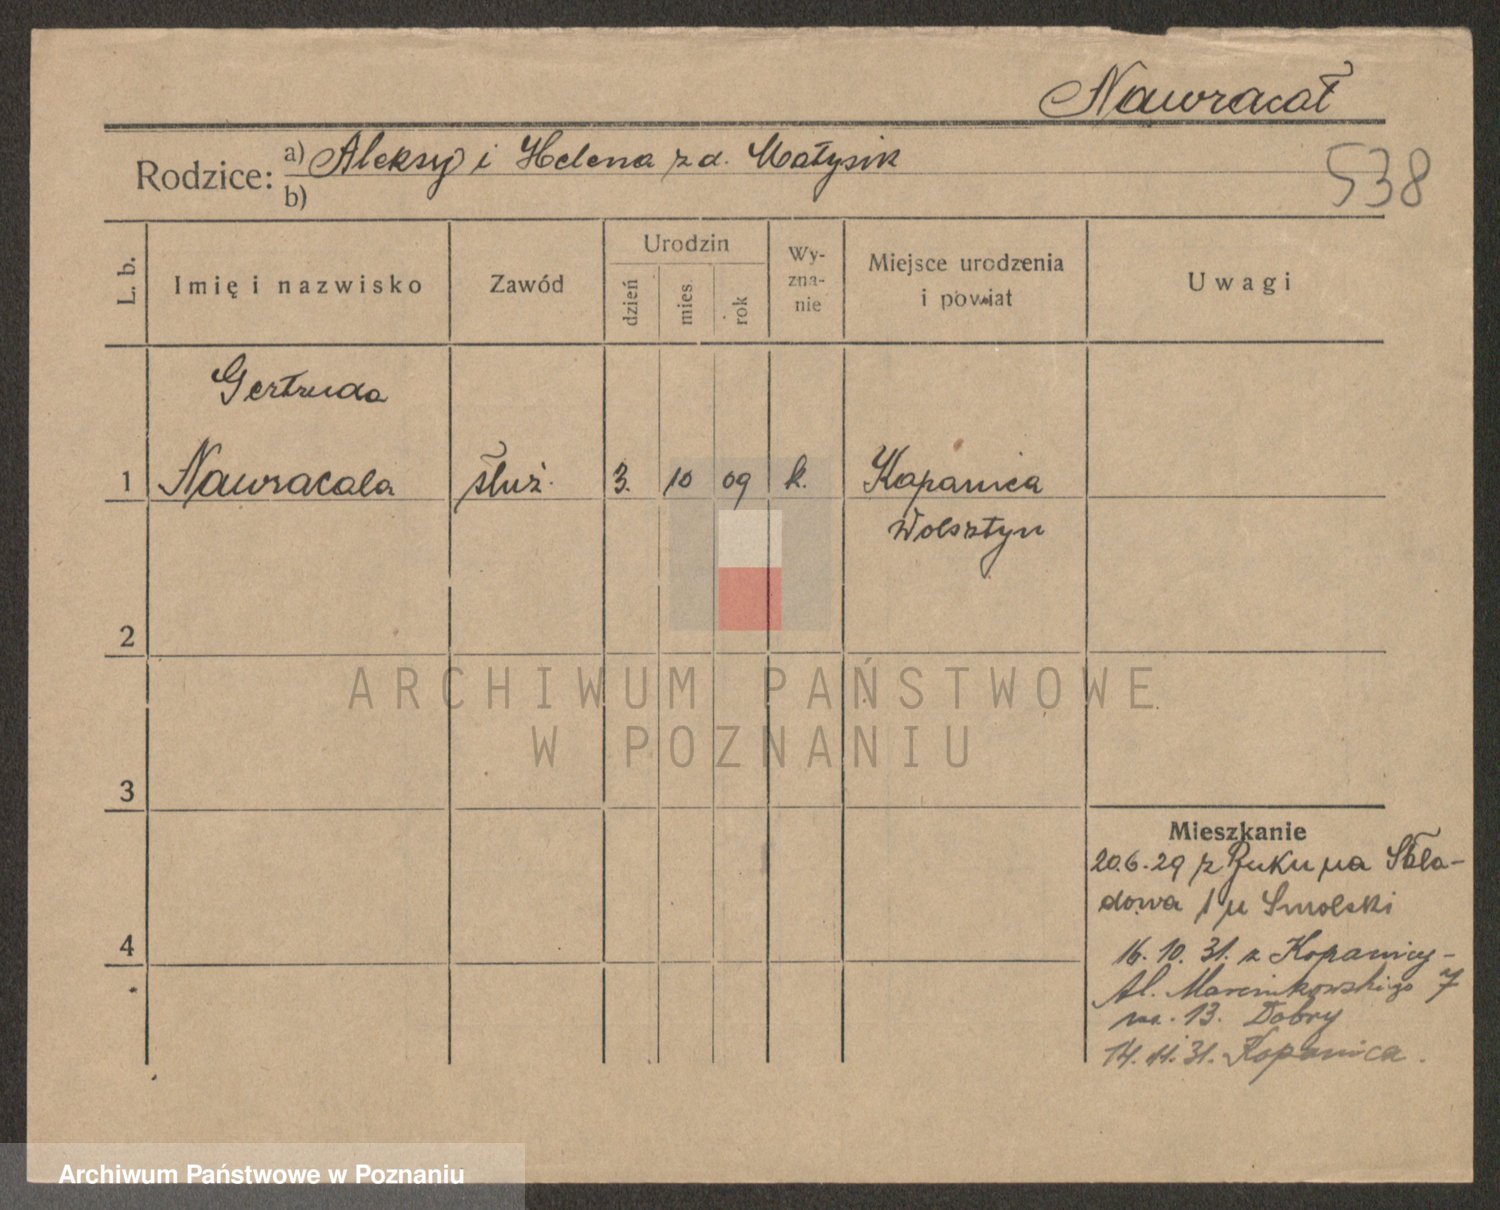 Nawracał
Rodzice: a) Aleksy i Helena z d. Matysik
b)
538
L. b.
Imię i nazwisko
Zawód
Urodzin
dzień
mies
rok
Wy-
zna-
nie
Miejsce urodzenia
i powiat
Uwagi
Gertruda
1 Nawracala służ. 3. 10 09 k. Kopanica
Wolsztyn
2
3
4
Mieszkanie
20.6.29 z Buku na Skła-
dowa 1 u Smolski
16. 10. 31. z Kopanicy -
Al. Marcinkowskiego 7
m. 13. Dobry
14. 11. 31. Kopanica.
ARCHIWUM PAŃSTWOWE
W POZNANIU
Archiwum Państwowe w Poznaniu